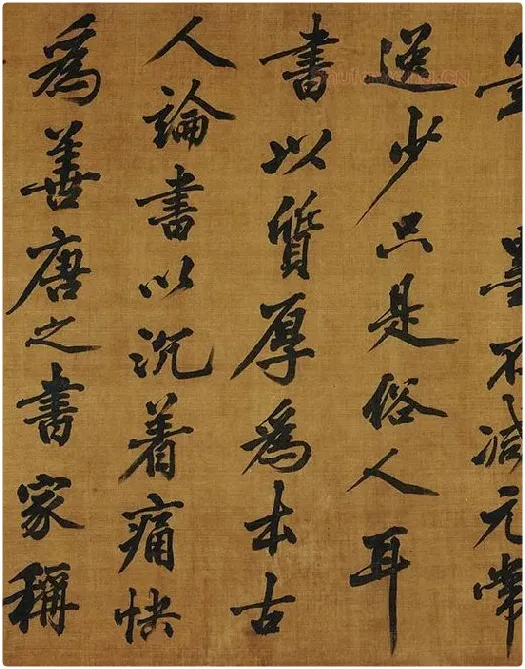 墨不减元常
逸少只是俗人耳
書以質厚爲本古
人論書以沉着痛快
爲善唐之書家稱